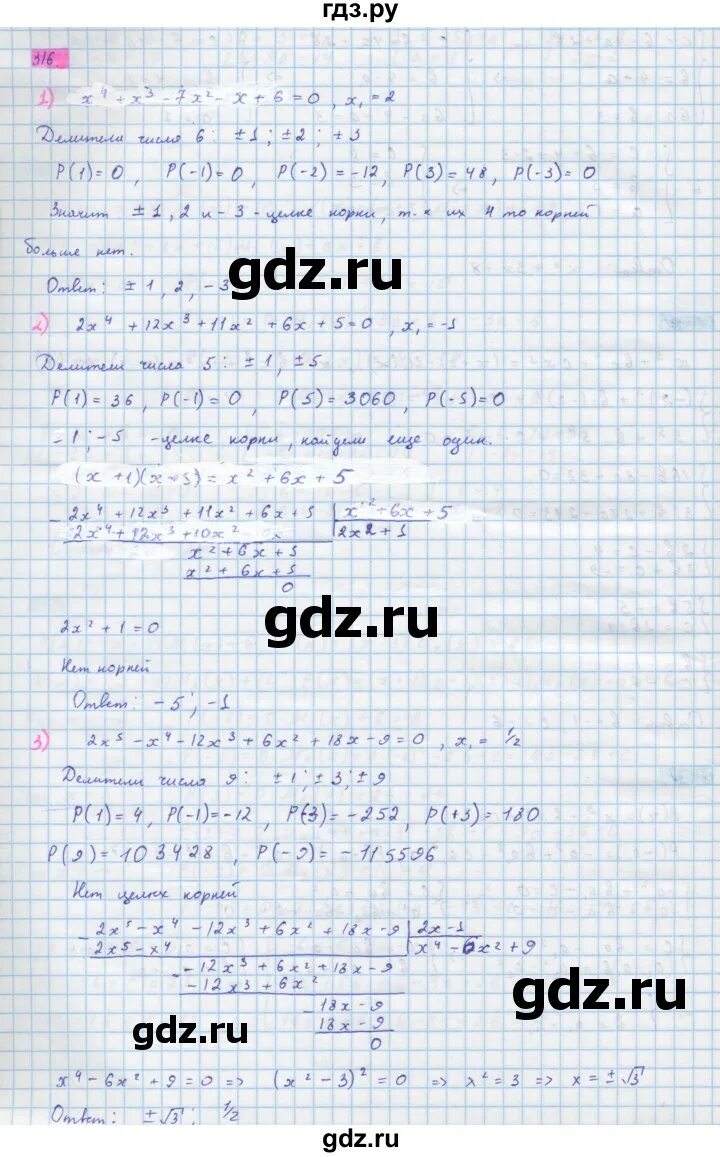 гдз.ру
316
1) x⁴ + x³ - 7x² - x + 6 = 0 , x₁ = 2
Делители числа 6 : ±1 ; ±2 ; ±3
P(1) = 0 , P(-1) = 0 , P(-2) = -12 , P(3) = 48 , P(-3) = 0
Значит ±1 , 2 и -3 - целые корни , т.к их 4 то корней
больше нет.
gdz.ru
Ответ : ±1 , 2 , -3
2) 2x⁴ + 12x³ + 11x² + 6x + 5 = 0 , x₁ = -1
Делители числа 5 : ±1 , ±5
P(1) = 36 , P(-1) = 0 , P(5) = 3060 , P(-5) = 0
-1 ; -5 - целые корни , найдем еще один.
(x + 1)(x + 5) = x² + 6x + 5
- 2x⁴ + 12x³ + 11x² + 6x + 5 | x² + 6x + 5
2x⁴ + 12x³ + 10x² 2x² + 1
x² + 6x + 5
x² + 6x + 5
0
gdz.ru
2x² + 1 = 0
Нет корней
Ответ : -5 ; -1
3) 2x⁵ - x⁴ - 12x³ + 6x² + 18x - 9 = 0 , x₁ = 1/2
Делители числа 9 : ±1 ; ±3 ; ±9
P(1) = 4 , P(-1) = -12 , P(-3) = -252 , P(+3) = 180
P(9) = 103428 , P(-9) = -115596
Нет целых корней
- 2x⁵ - x⁴ - 12x³ + 6x² + 18x - 9 | 2x - 1
2x⁵ - x⁴ x⁴ - 6x² + 9
- -12x³ + 6x² + 18x - 9
-12x³ + 6x²
- 18x - 9
18x - 9
0
gdz.ru
gdz.ru
x⁴ - 6x² + 9 = 0 => (x² - 3)² = 0 => x² = 3 => x = ±√3
Ответ : ±√3 ; 1/2
gdz.ru